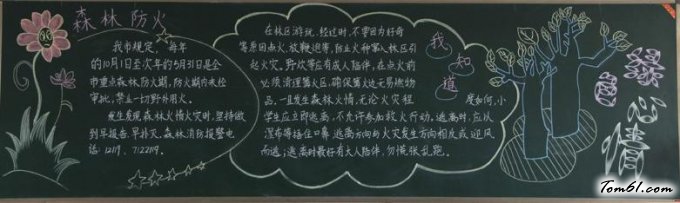 森林防火
我市规定，每年
的10月1日至次年的5月31日是全
市重点森林防火期，防火期内未经
审批，禁止一切野外用火。
发生发现森林火情火灾时，坚持做
到早报告、早扑灭，森林消防报警电
话：12119、7122119。
在林区游玩、经过时，不要因为好奇
等原因点火、放鞭炮等，防止火种带入林区引
起火灾。野炊等应有成人陪伴，在点火前
必须清理篝火区，确保篝火边无易燃物
品。一旦发生森林火情，无论火灾程度如何，小
学生应立即逃离，不允许参加救火行动。逃离时，应以
湿布等捂住口鼻，逃离方向与火灾发生方向相反或迎风
而逃；逃离时最好有大人陪伴，勿慌张乱跑。
我
知
道
绿
色
心
情
Tom61.com